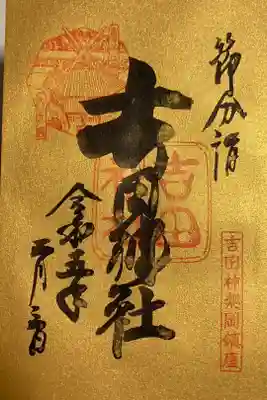 節分詣
吉田神社
吉田神社
令和五年
二月三日
吉田神楽岡鎮座